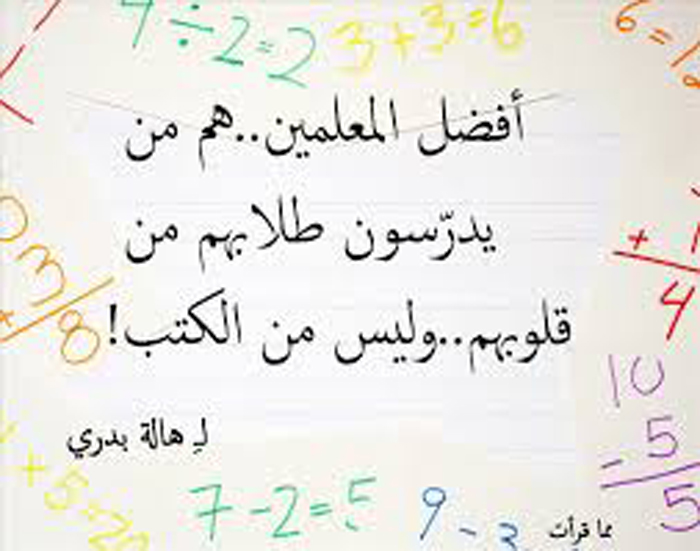 4÷2=2
3+3=6
6=12
أفضل المعلمين..هم من
يدرّسون طلابهم من
قلوبهم..وليس من الكتب!
لـ هالة بدري
3
8
+
4
10
- 5
5
+5=20
7-2=5
9-3
مما قرأت